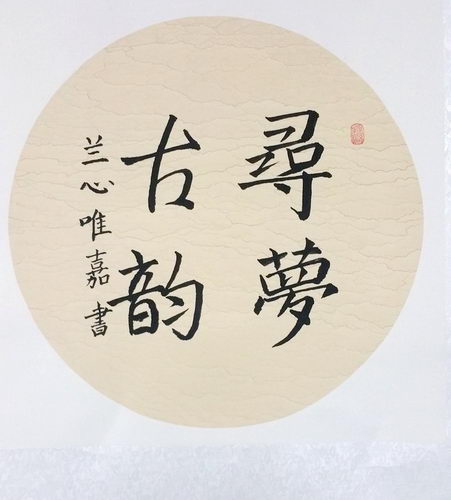 尋夢
古韵
兰心唯嘉書